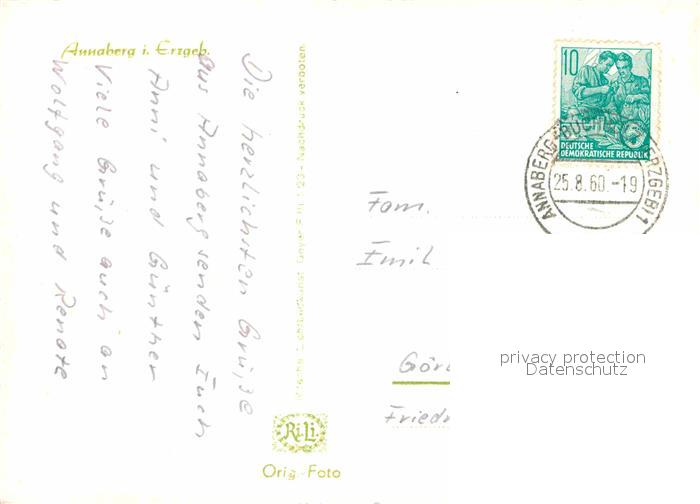 Annaberg i. Erzgeb.
Die herzlichsten Grüße
aus Annaberg senden Euch
Anni und Günther
Viele Grüße auch an
Wolfgang und Renate
Nachdruck verboten
Ri.Li.
Orig.-Foto
10
DEUTSCHE
DEMOKRATISCHE REPUBLIK
ANNABERG-BUCHHOLZ (ERZGEB) 1
25.8.60.-19
Fam.
Emil
Gör
Friedr
privacy protection
Datenschutz